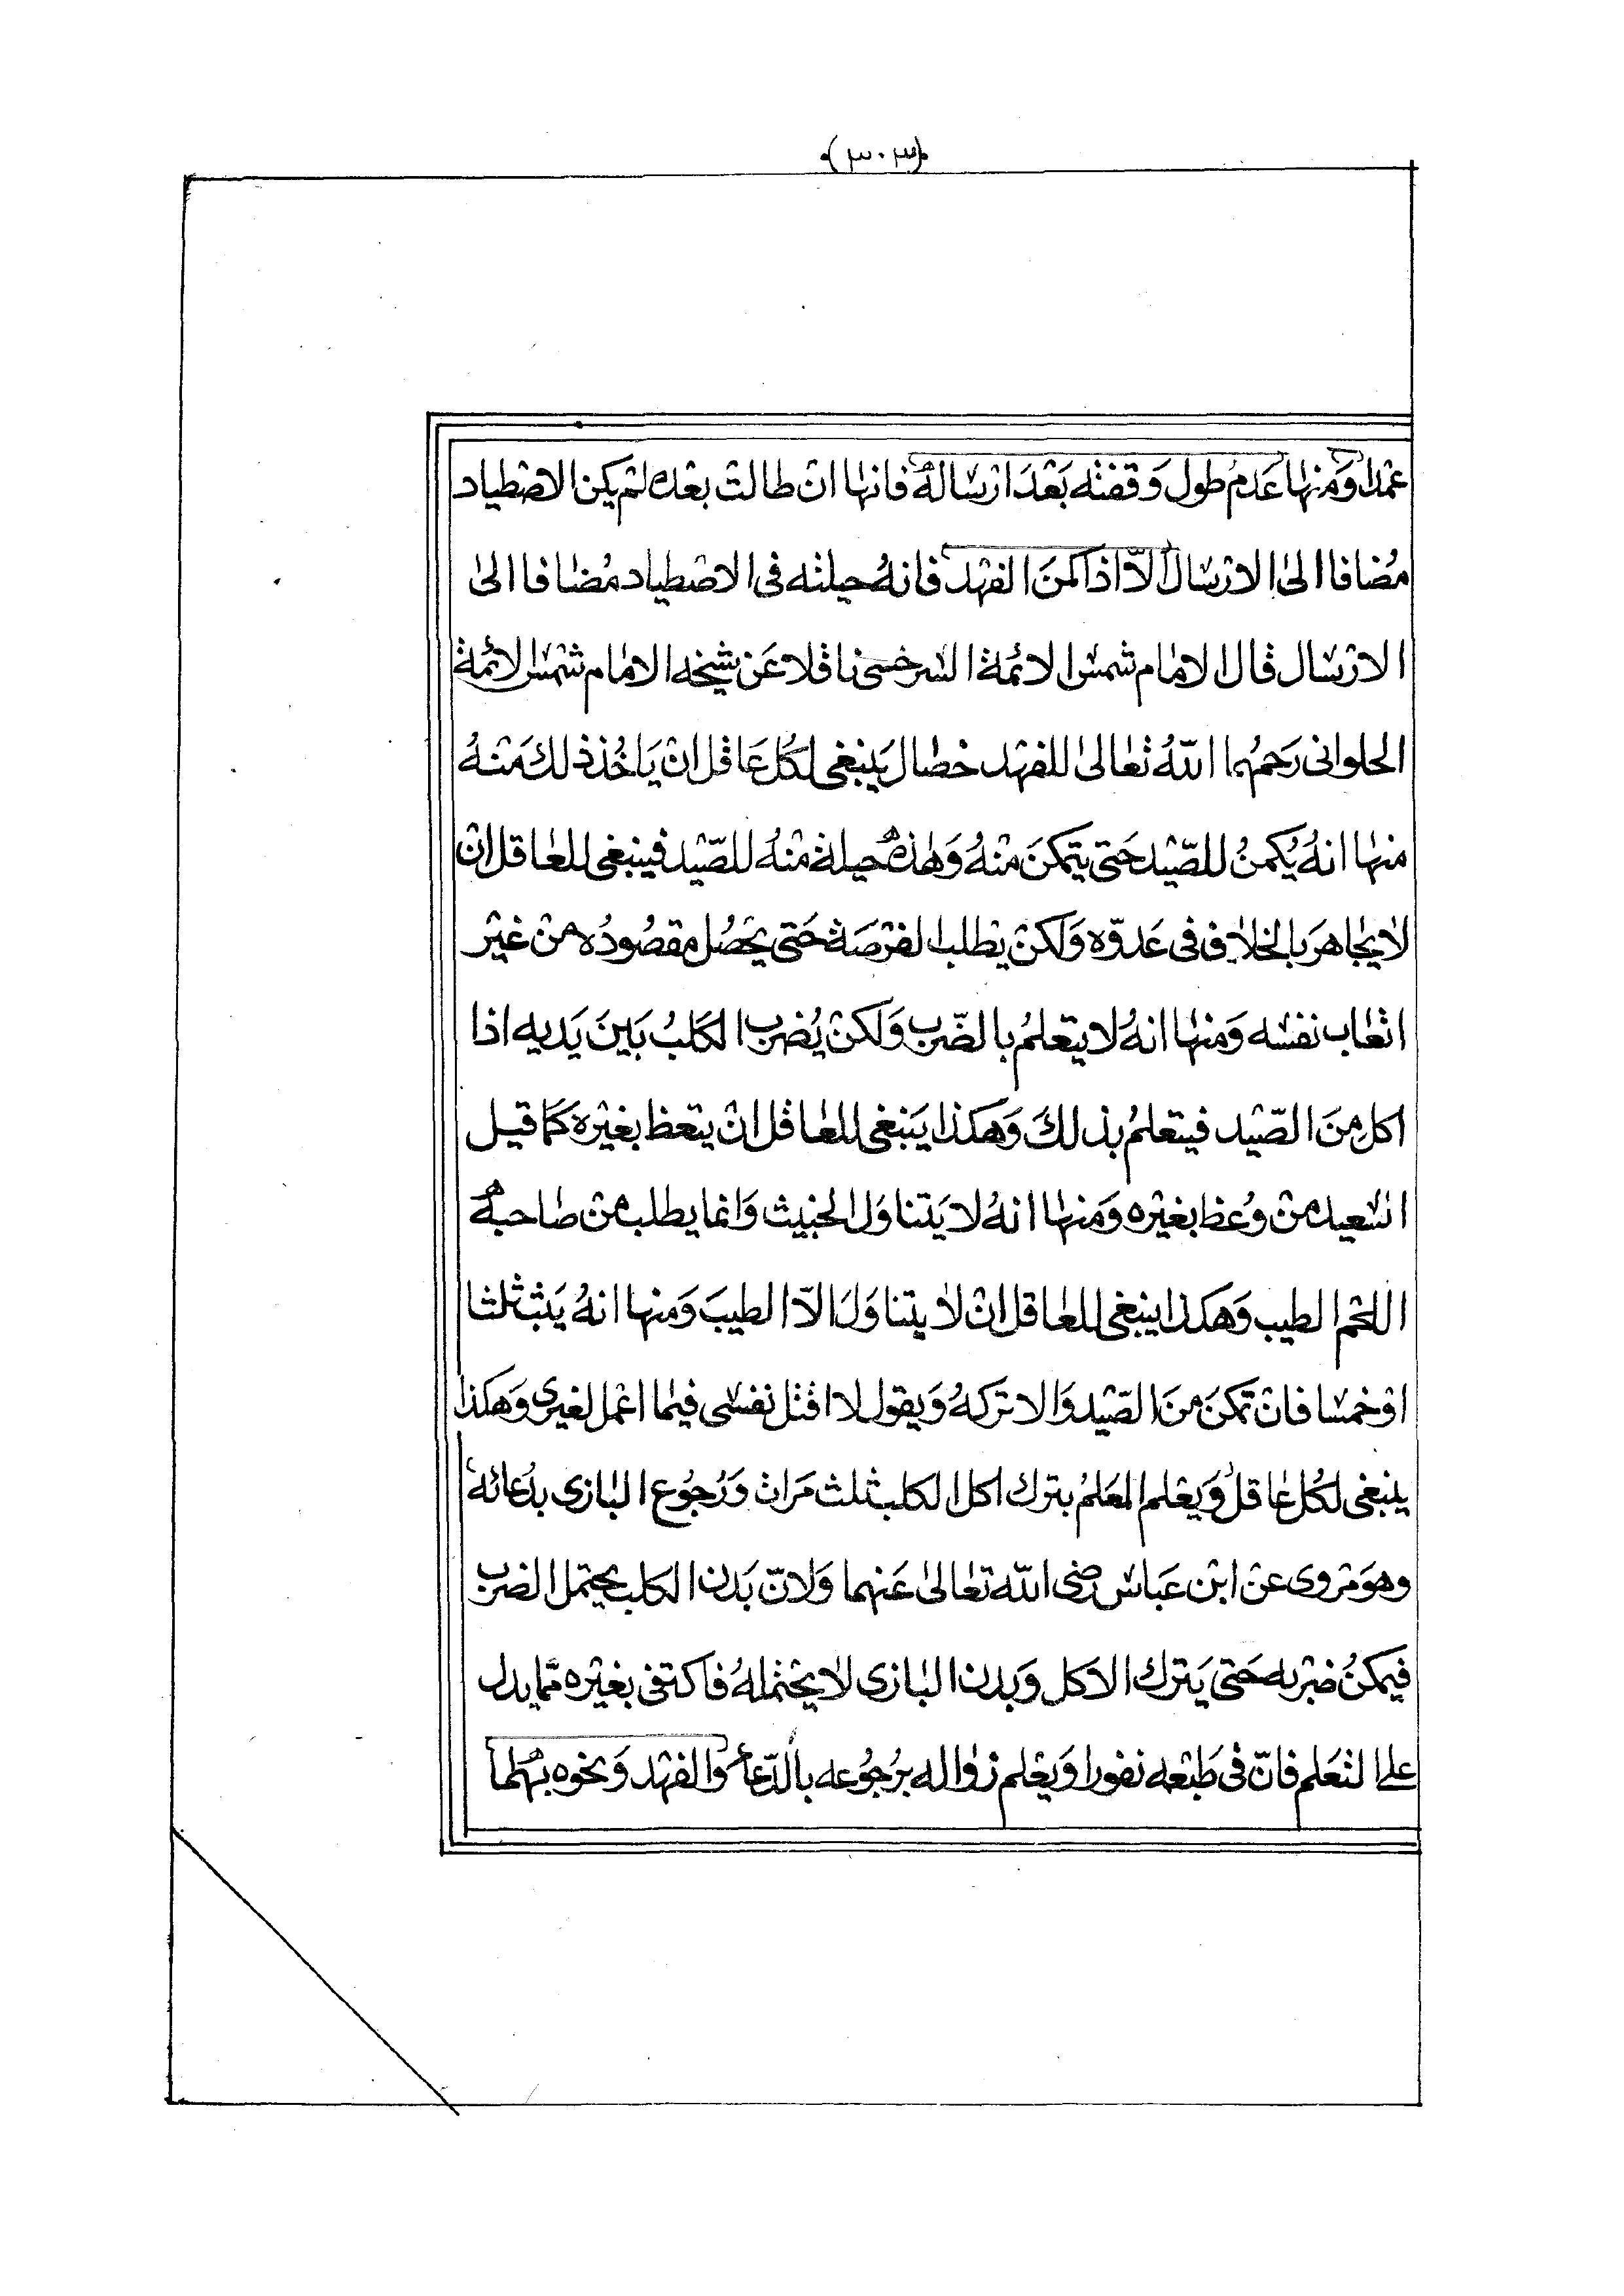 (٣٠٣)
عمْدا وَمنها عَدمُ طول وَقفته بَعْدَ ارْساله فانها انْ طالتْ بعْده لمْ يكن الاصْطياد
مُضافا الىٰ الارْسال الاّ اذا كمَنَ الفهْد فانهُ حيلته فى الاصْطياد مُضافا الىٰ
الارْسال قال الامام شمسْ الائمة السرخسى ناقلا عَن شيخه الامام شمْس الائمة
الحلوانى رَحمهُما اللّهُ تعالىٰ للفهْد خصال يَنبغى لكُل عَاقل انْ يَاخُذ ذلك مَنْهُ
منها انهُ يُكمنُ للصّيْد حَتى يتمكنَ منْهُ وَهٰذهٖ حيلة منْهُ للصّيْد فينبغى للعٰاقل انْ
لايجٰاهرَ بالخلاف فى عَدوّه وَلكنْ يطلب الفرْصَة حَتى يحْصُل مقصُودُه منْ غيْر
اتعٰاب نفسْه وَمنها انهُ لا يتعلمُ بالضّرب وَلكنْ يُضرب الكلبُ بَينَ يَديه اذا
اكل منَ الصّيْد فيتعلمُ بذلكَ وَهكذا يَنبغى للعٰاقل انْ يتعظ بغيْره كمَا قيل
السّعيد منْ وُعظ بغيْره وَمنها انهُ لا يَتناوَل الخبيث وَانما يطلب منْ صٰاحبهٖ
اللحْم الطيب وَهكذا ينبغى للعاقل انْ لا يتناوَلَ الاّ الطيبَ وَمنها انهُ يَثبْ ثلثا
اوْ خمسْا فانْ تمكنَ منَ الصّيْد وَالا تركهُ وَيقول لا اقتل نفسْى فيمٰا اعْمل لغيرى وَهكذا
ينبغى لكُل عٰاقل وَيعْلم المعَلمُ بترك اكل الكلب ثلث مَرات وَرُجُوع البٰازى بدُعائه
وهوَ مرْوى عنْ ابْن عَباسْ رضى اللّه تعالىٰ عَنهما وَلانّ بَدن الكلب يحتمل الضرب
فيمكنُ ضرْبه حَتى يَترك الاكل وَبدن البٰازى لا يحْتملهُ فاكتفى بغيْره ممّا يدل
على التعَلم فانّ فى طَبْعه نفورا وَيعْلم زوٰاله برُجُوعه بالدّعاء وَالفهْد وَنحْوه بهمٰا